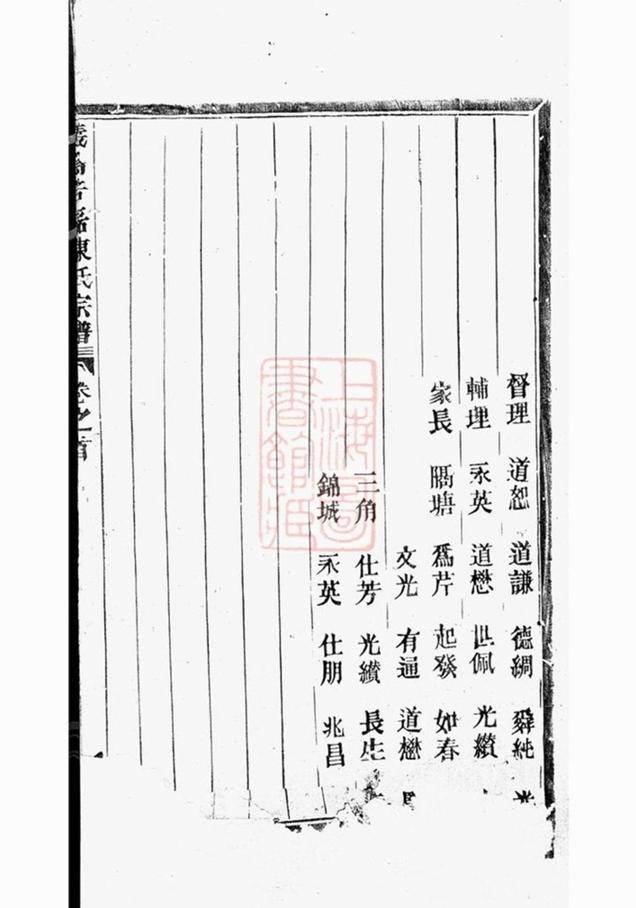 督理 道恕 道謙 德綢 舜純 光
輔理 永英 道懋 世佩 光纘
家長 隔塘 爲芹 起發 如春
文光 有通 道懋
三角 仕芳 光纘 長生
錦城 永英 仕朋 兆昌
陳氏宗譜 卷之首
上海圖書館藏